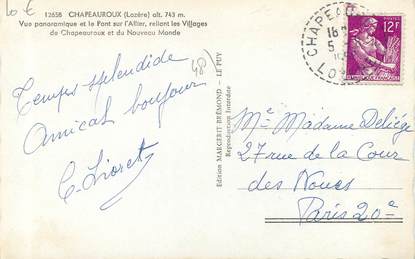 10 €
12656 CHAPEAUROUX (Lozère) alt. 743 m.
Vue panoramique et le Pont sur l'Allier, reliant les Villages
de Chapeauroux et du Nouveau Monde
(48)
Temps splendide
Amical bonjour
Edition MARGERIT-BRÉMOND - LE PUY
Reproduction Interdite
CHAPEAU
18
5
LO
12F
Me Madame Deliége
27 rue de la Cour
des Noues
Paris 20e